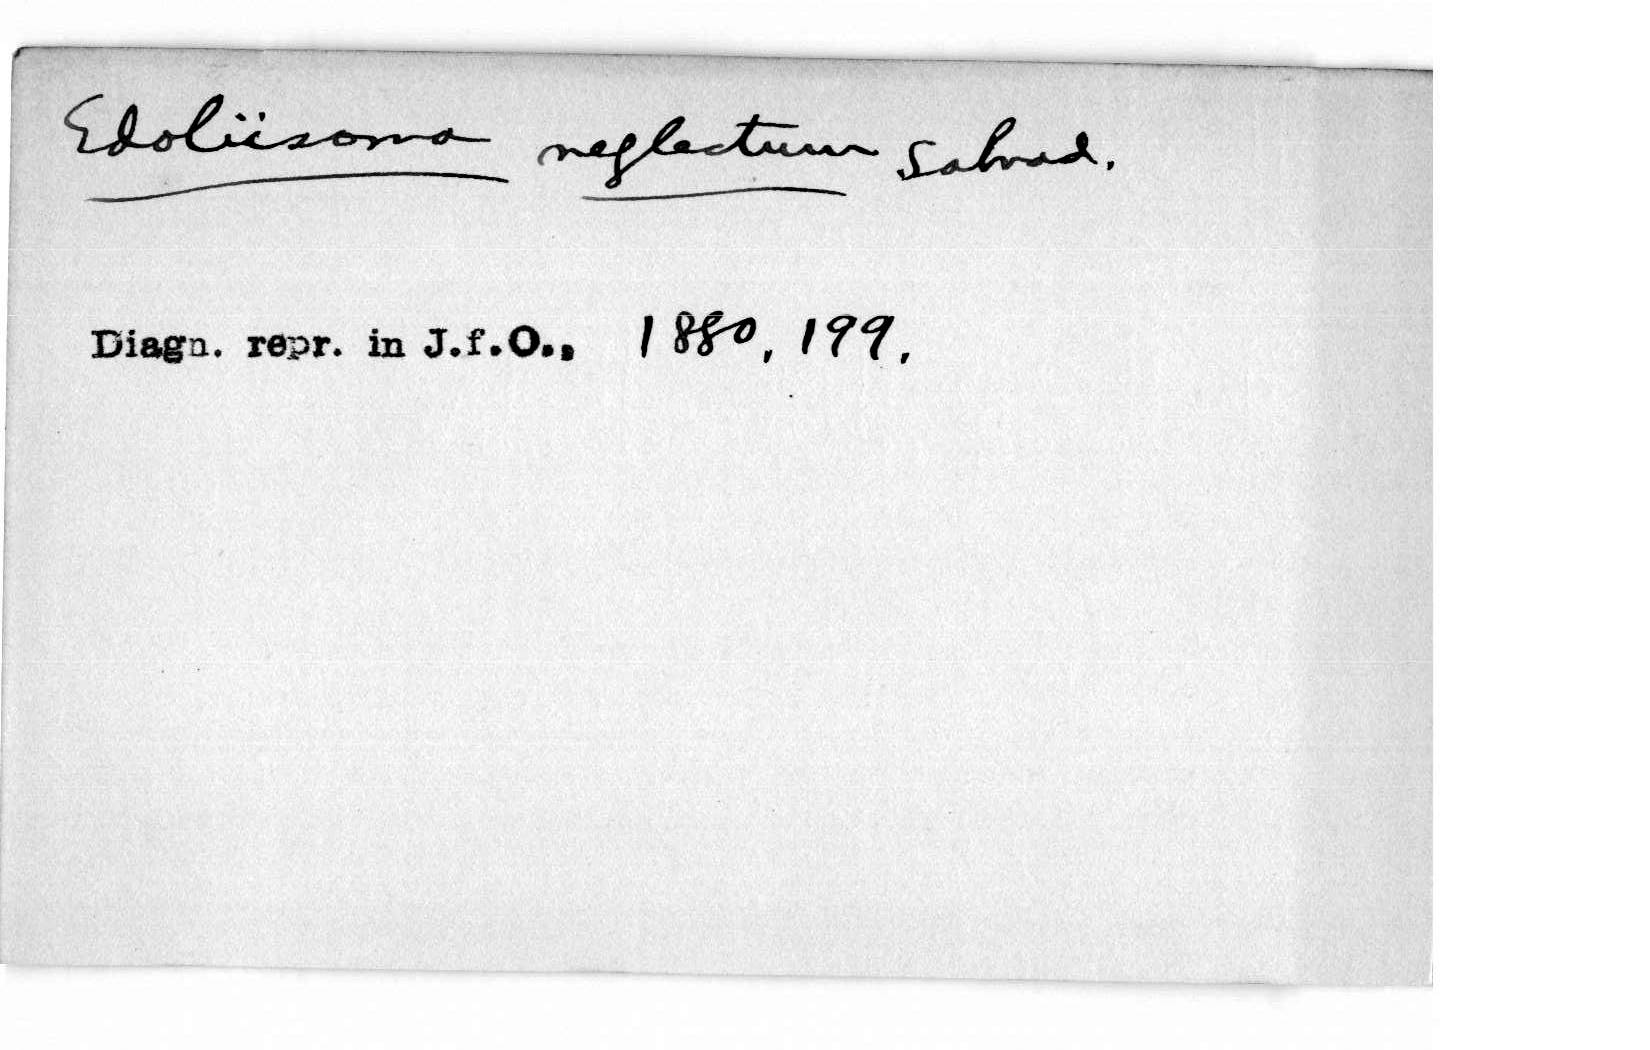 Edoliisoma neglectum Salvad.
Diagn. repr. in J.f.O., 1880, 199.